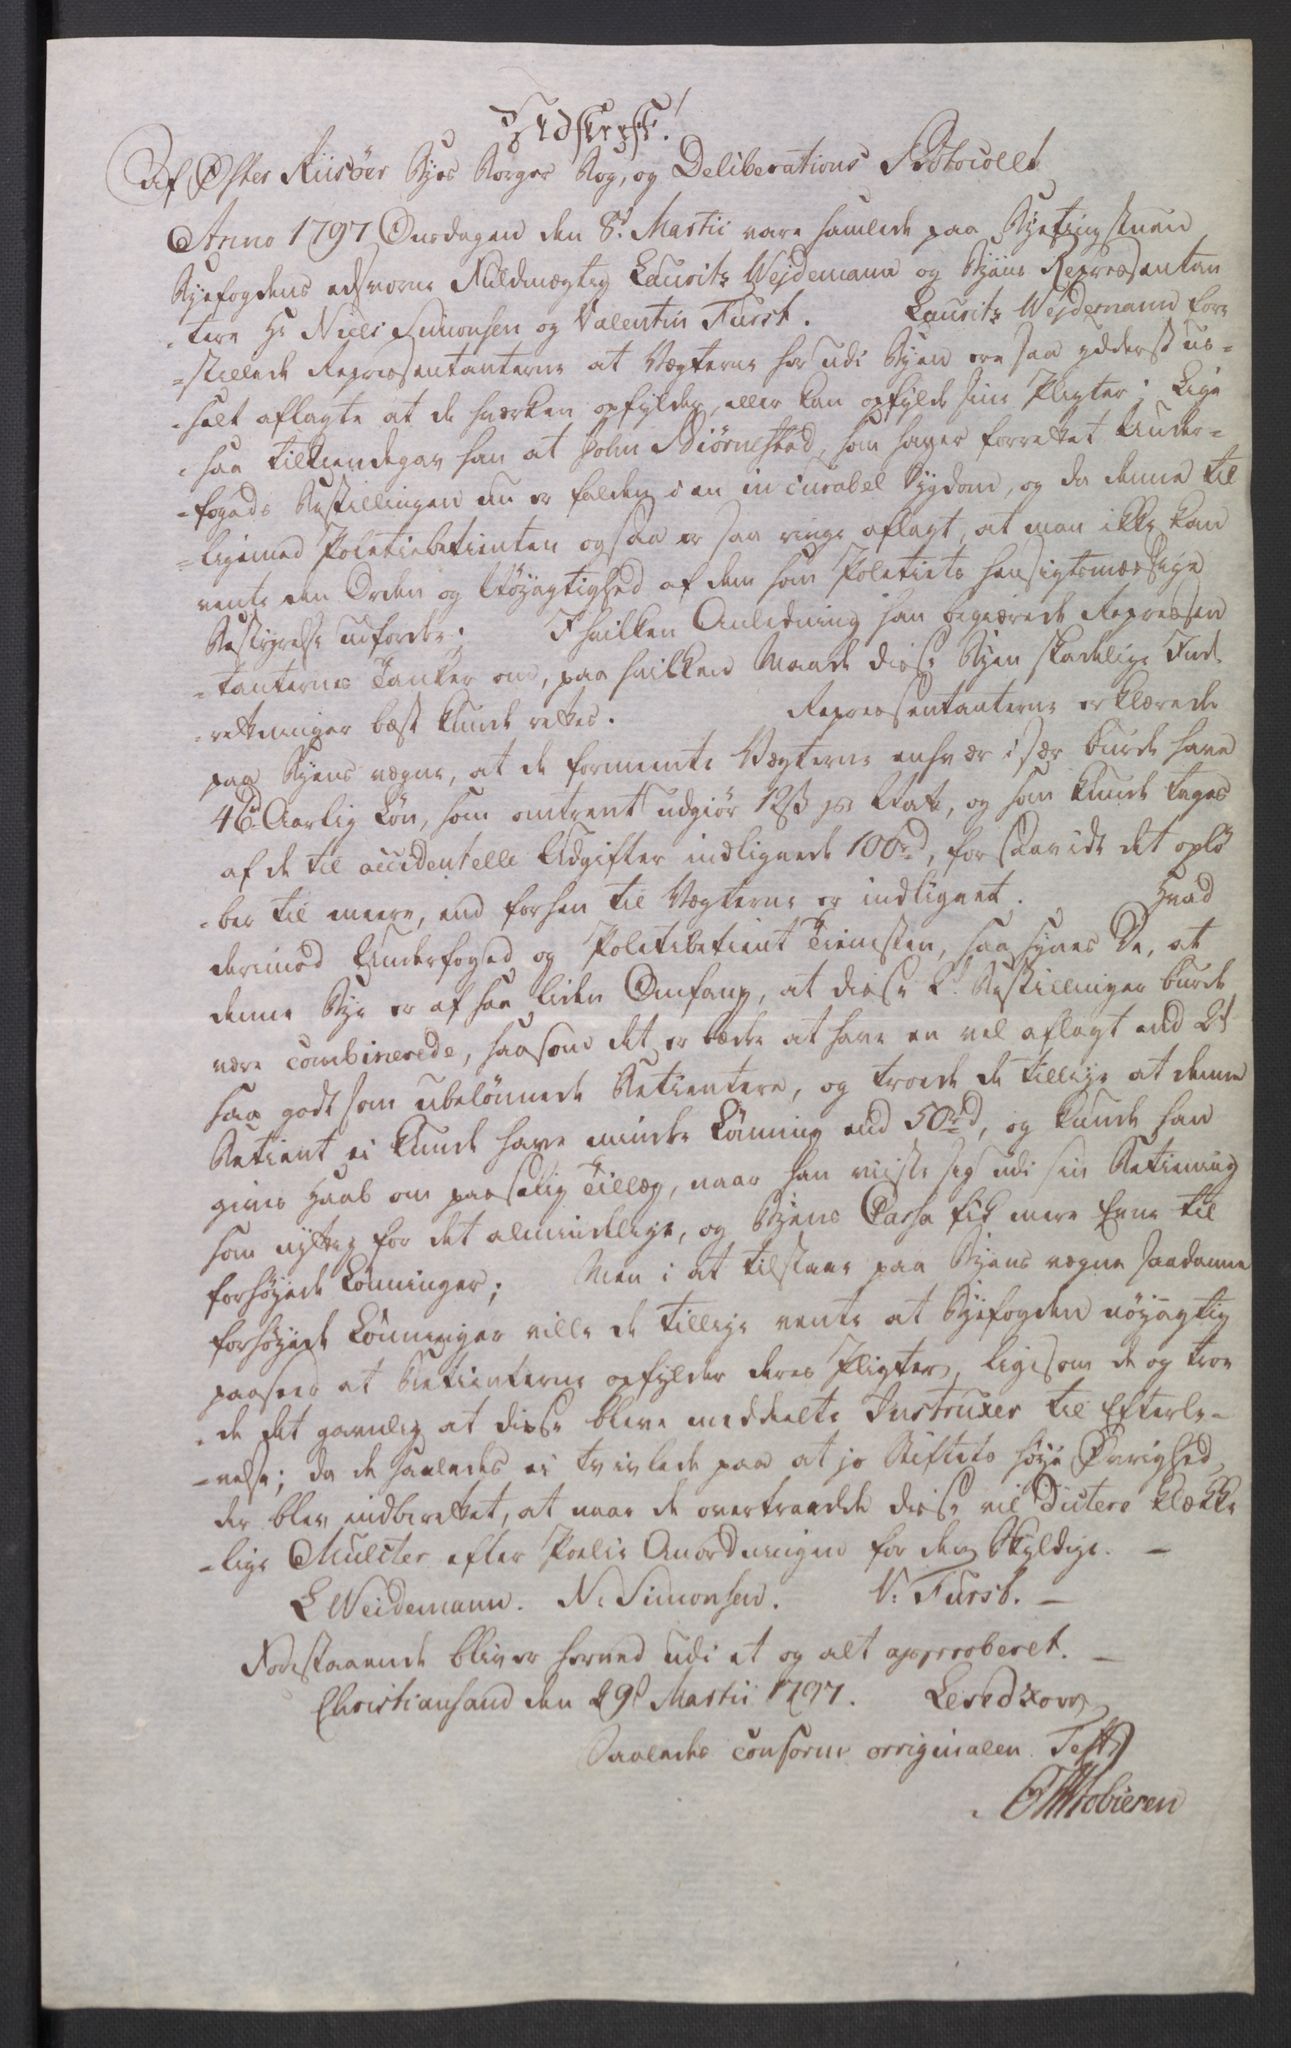 Udskrift!
Af Øster Riisöer Byes Borger Bog, og Deliberations Protocoll
Anno 1797 Onsdagen den 8de Martii vare samlede paa Byetingstuen
Byefogdens edsvorne Fuldmægtig Laurits Wejdemann og Byens Repræsentan
-tere Hr Niels Simonsen og Valentin Fürst. Laurits Wejdemann fore
-stillede Repræsentanterne at Vægterne her udi Byen ere saa yderst us-
-selt aflagte at de hverken opfylder, eller kan opfylde sine Pligter; Lige
-saa tilkiendegav han at John Biörnestad, som haver forrettet Under-
-fogeds Bestillingen nu er falden i en incurabel Sygdom, og da denne til
-ligemed Politiebetienten ogsaa er saa ringe aflagt, at man ikke kan
vente den Orden og Nöyagtighed af dem som Politiets hensigtsmæssige
Bestyrelse udfordre; I hvilken Anledning han begiærede Repræsen
-tanternes Tanker om, paa hvilken Maade disse Byen skadelige Ind-
-retninger best kunde rettes. Repræsentanterne erklærede
paa Byens vegne, at de formente Vægterne enhver især burde have
46rd Aarlig Lön, som omtrent udgiör 12ß pr Nat, og som kunde tages
af de til accidentelle Udgifter indlignede 100rd, forsaavidt det oplö
-ber til meere, end forhen til Vægterne er indlignet. Hvad
derimod Underfoged og Politibetient Tienesten, saa synes de, at
denne Bye er af saa liden Omfang, at disse 2de Bestillinger burde
være combinerede, saasom det er bedre at have en vel aflagt end 2de
saa godt som ubelönnede Betientere, og troede de tillige at denne
Betient ei kunde have mindre Lönning end 50rd, og kunde han
gives Haab om paaselig Tillæg, naar han viiste sig udi sin Betiening
som nyttig for det almindelige, og Byens Cassa fik mere Evne til
forhöyede Lönninger; Men i at tilstaae paa Byens vegne saadanne
forhöyede Lönninger ville de tillige vente at Byefogden nöyagtig
paaseer at Betienterne opfylder deres Pligter, ligesom de og troe
-de det gavnlig at disse bleve meddeelte Instruxer til Efterle-
-velse; da de saaledes ei tvivlede paa at jo Stiftets höye Øvrighed,
der blev indberettet, at naar de overtraadde disse vil dictere klække
-lige Mulcter efter Polir Anordningen for den Skyldige. —
L Weidemann. N: Simonsen. V: Fürst. —
Forestaaende bliver herved udi et og alt approberet. —
Christiansand den 29de Martii 1797. Levetzow
Saaledes conform originalen Test